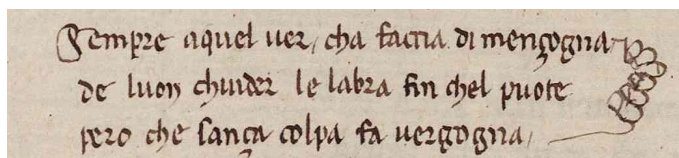 Sempre aquel uer, cha faccia di mençogna
de luon chiuder le labra fin chel puote
pero che sança colpa fa uergogna,